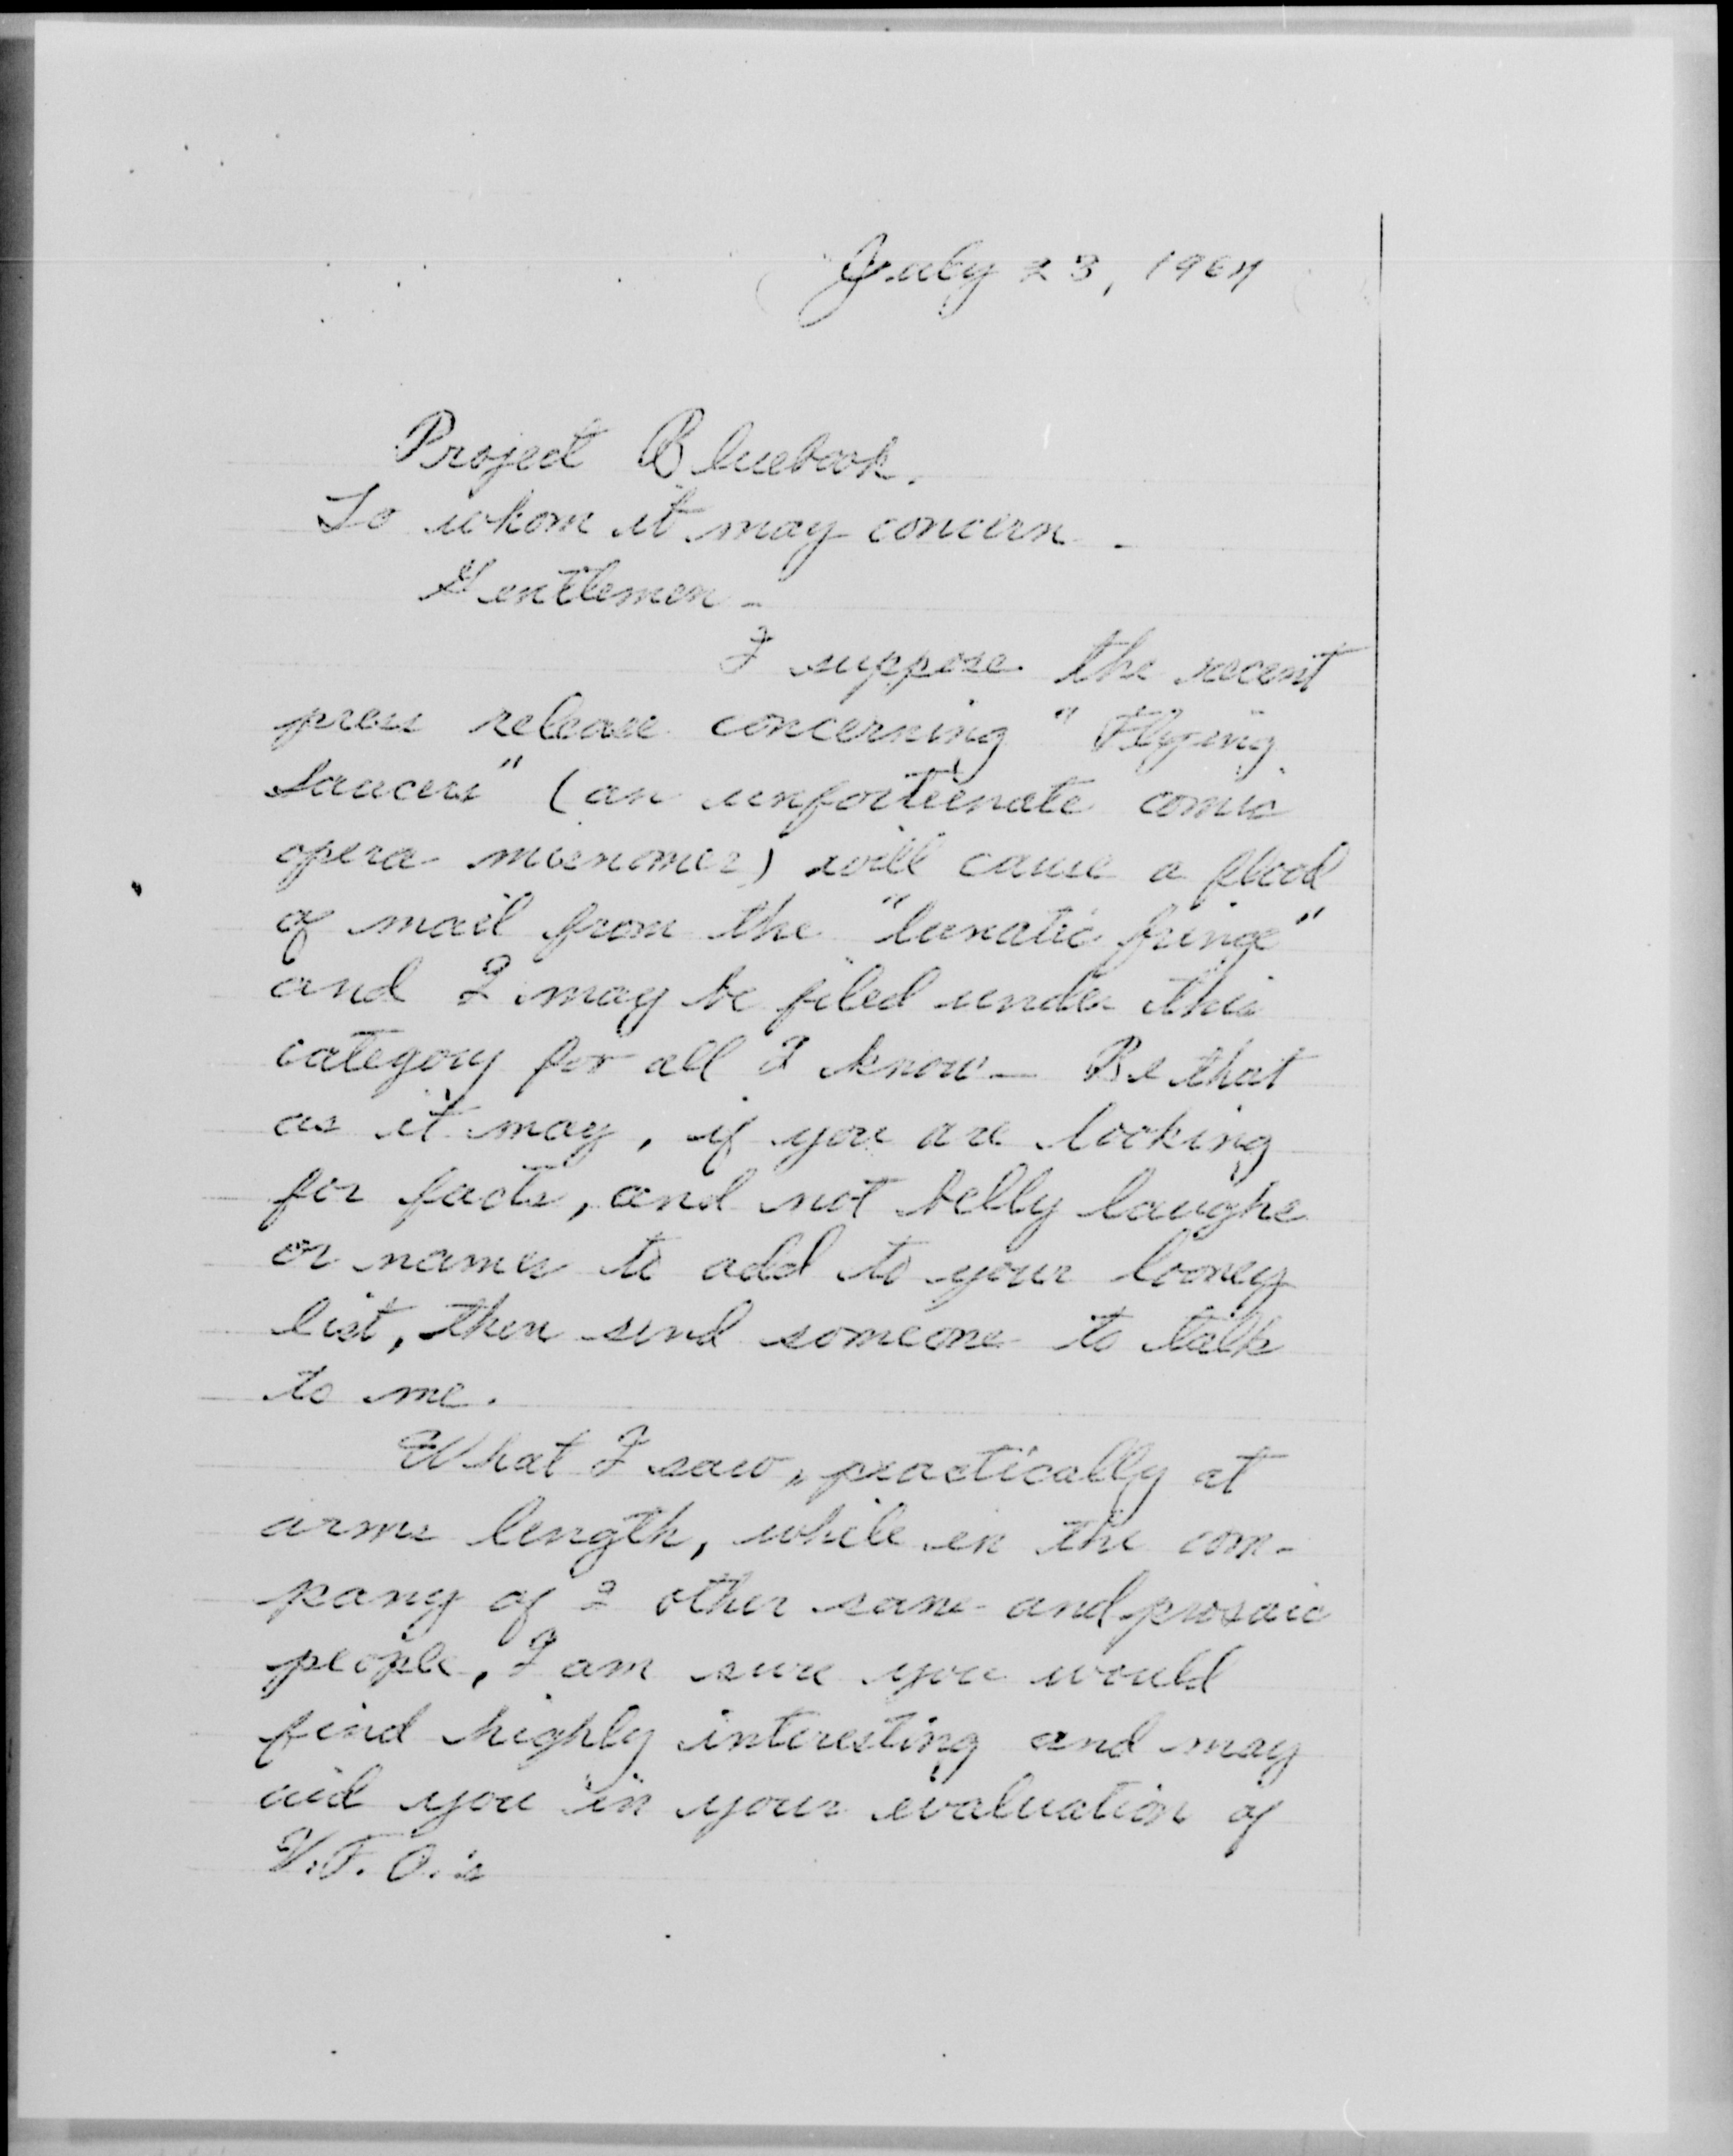 July 23, 1964
Project Bluebook.
To whom it may concern -
Gentlemen -
I suppose the recent
press release concerning "Flying
Saucers" (an unfortunate comic
opera misnomer) will cause a flood
of mail from the "lunatic fringe"
and I may be filed under this
category for all I know - Be that
as it may, if you are looking
for facts, and not belly laughs
or names to add to your looney
list, then send someone to talk
to me.
What I saw, practically at
arms length, while in the com-
pany of 2 other sane and prosaic
people, I am sure you would
find highly interesting and may
aid you in your evaluation of
U.F.O.'s